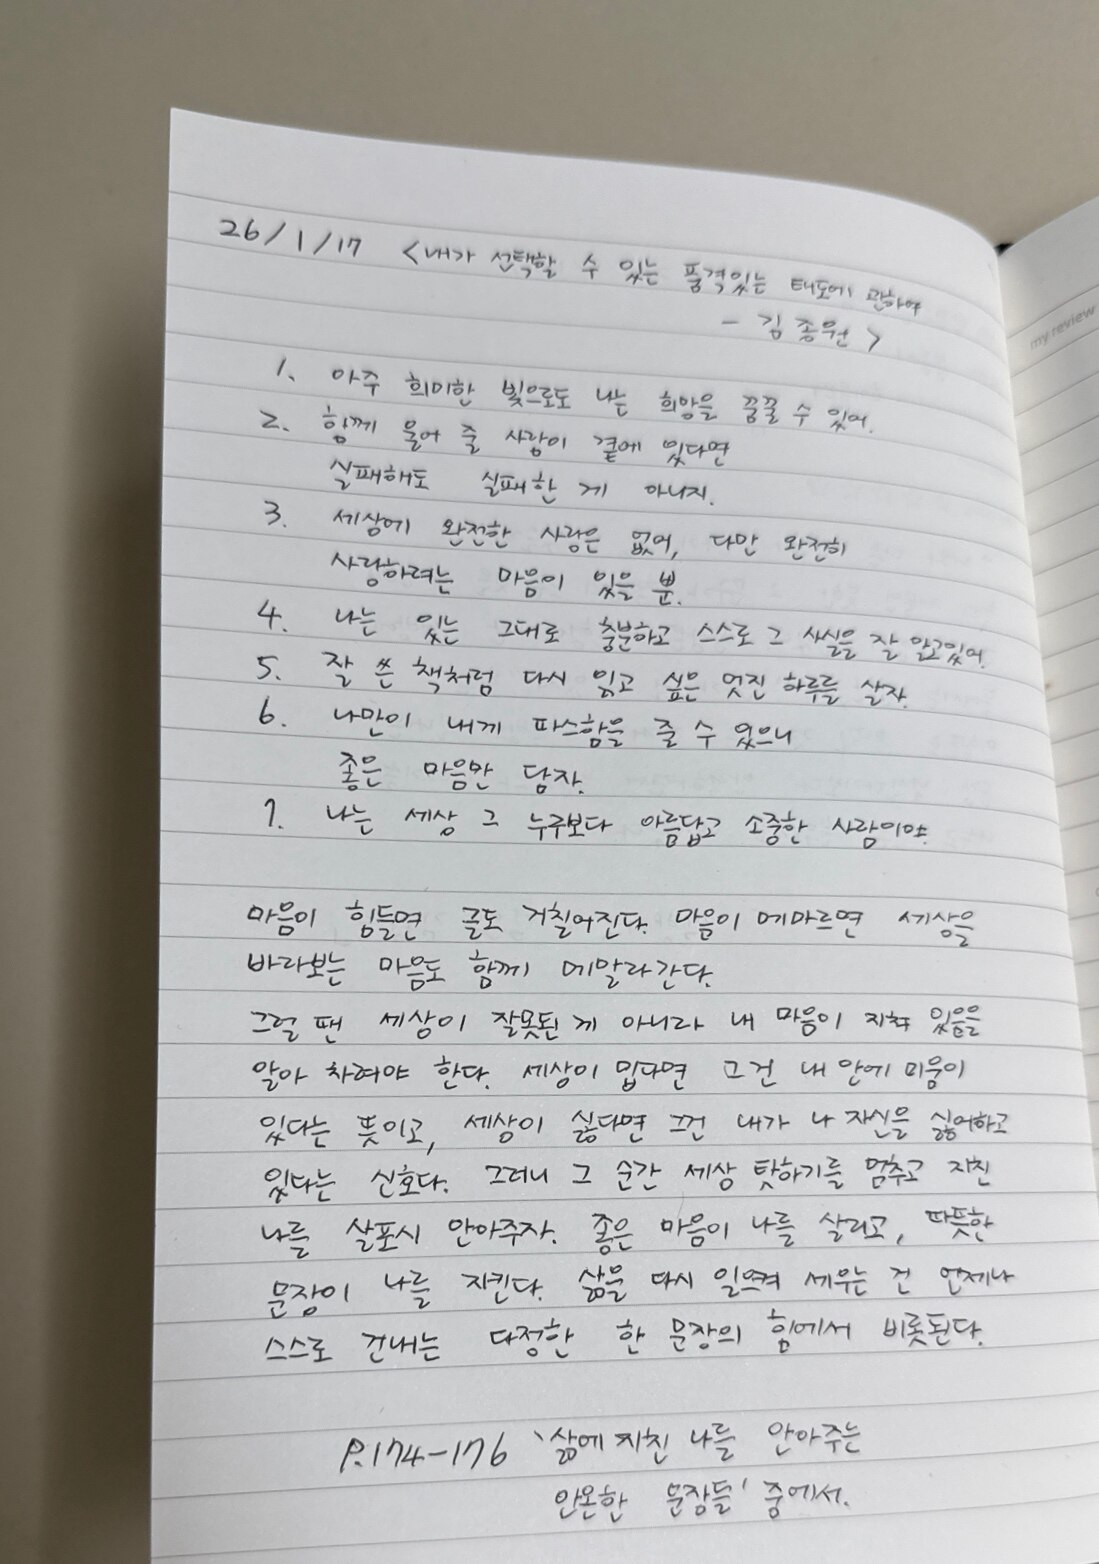 26/1/17 <내가 선택할 수 있는 품격있는 태도에 관하여
- 김종원 >
1. 아주 희미한 빛으로도 나는 희망을 꿈꿀 수 있어.
2. 함께 울어 줄 사람이 곁에 있다면
실패해도 실패한 게 아니지.
3. 세상에 완전한 사랑은 없어, 다만 완전히
사랑하려는 마음이 있을 뿐.
4. 나는 있는 그대로 충분하고 스스로 그 사실을 잘 알고있어.
5. 잘 쓴 책처럼 다시 읽고 싶은 멋진 하루를 살자.
6. 나만이 내게 따스함을 줄 수 있으니
좋은 마음만 담자.
7. 나는 세상 그 누구보다 아름답고 소중한 사람이야.
마음이 힘들면 글도 거칠어진다. 마음이 메마르면 세상을
바라보는 마음도 함께 메말라간다.
그럴 땐 세상이 잘못된 게 아니라 내 마음이 지쳐 있음을
알아 차려야 한다. 세상이 밉다면 그건 내 안에 미움이
있다는 뜻이고, 세상이 싫다면 그건 내가 나 자신을 싫어하고
있다는 신호다. 그러니 그 순간 세상 탓하기를 멈추고 지친
나를 살포시 안아주자. 좋은 마음이 나를 살리고, 따뜻한
문장이 나를 지킨다. 삶을 다시 일으켜 세우는 건 언제나
스스로 건내는 다정한 한 문장의 힘에서 비롯된다.
P.174-176 '삶에 지친 나를 안아주는
안온한 문장들' 중에서.
my review